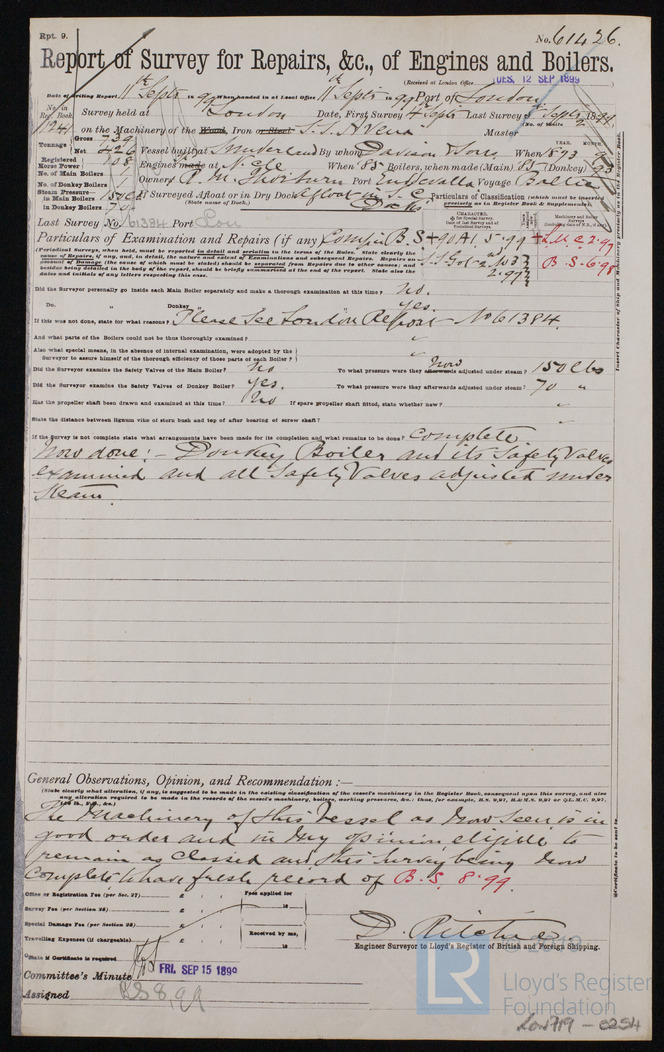 Rpt. 9.
No. 61426.
Report of Survey for Repairs, &c., of Engines and Boilers.
(Received at London Office TUES. 12 SEP 1899
Date of writing Report 11th Septr 1899 When handed in at Local Office 11th Septr 1899 Port of London
No. in Reg. Book. Survey held at London Date, First Survey 4 Septr Last Survey 5 Septr 1899
1124 on the Machinery of the Wood, Iron or Steel S.S. Avena Master
(No. of Visits 2
Tonnage Gross 739
Net 426
Vessel built at Sunderland By whom Davison & Sons When 1873
YEAR. MONTH.
Registered Horse Power 108
Engines made at N.Cle When '85 Boilers, when made (Main) 85 (Donkey) 93
No. of Main Boilers 1
Owners R. M. Thorburn Port Uddevalla Voyage Baltic
No. of Donkey Boilers 1
Steam Pressure in Main Boilers 150 lbs
in Donkey Boilers 70
If Surveyed Afloat or in Dry Dock Afloat in S. C. Docks
(State name of Dock.)
Particulars of Classification (which must be inserted precisely as in Register Book & Supplements).
Last Survey No. 61384 Port Lon
Particulars of Examination and Repairs (if any) Comp. B.S.
+90A1. 5.99
+L.M.C. 2.97
B.S. 6.98
(Periodical Surveys, when held, must be reported in detail and seriatim in the terms of the Rules. State clearly the cause of Repairs, if any, and, in detail, the nature and extent of Examinations and subsequent Repairs. Repairs on account of Damage (the cause of which must be stated) should be separated from Repairs due to other causes; and besides being detailed in the body of the report, should be briefly summarized at the end of the report. State also the dates and initials of any letters respecting this case.
Did the Surveyor personally go inside each Main Boiler separately and make a thorough examination at this time? no.
Do. " Donkey " yes.
If this was not done, state for what reasons? Please See London Report No 61384.
And what parts of the Boilers could not be thus thoroughly examined?
Also what special means, in the absence of internal examination, were adopted by the Surveyor to assure himself of the thorough efficiency of those parts of each Boiler?
Did the Surveyor examine the Safety Valves of the Main Boiler? no To what pressure were they afterwards now adjusted under steam? 150 lbs
Did the Surveyor examine the Safety Valves of Donkey Boiler? yes. To what pressure were they afterwards adjusted under steam? 70 "
Has the propeller shaft been drawn and examined at this time? No If spare propeller shaft fitted, state whether new?
State the distance between lignum vitæ of stern bush and top of after bearing of screw shaft?
If the Survey is not complete state what arrangements have been made for its completion and what remains to be done? Complete.
Now done: - Donkey Boiler and its Safety Valves
examined and all Safety Valves adjusted under
steam.
General Observations, Opinion, and Recommendation :—
(State clearly what alteration, if any, is suggested to be made in the existing classification of the vessel's machinery in the Register Book, consequent upon this survey, and also any alteration required to be made in the records of the vessel's machinery, boilers, working pressures, &c.: thus, for example, B.S. 9,97, B.&M.S. 9,97 or L.M.C. 9,97,
The Machinery of this Vessel as now seen is in
good order and in my opinion eligible to
remain as Classed and this survey being now
complete to have fresh record of B.S. 8.99.
Office or Registration Fee (per Sec. 27) £
Survey Fee (per Section 28) £
Special Damage Fee (per Section 28) £
Travelling Expenses (if chargeable) £
Fees applied for
18
Received by me,
18
State if Certificate is required
D. Ritchie
Engineer Surveyor to Lloyd's Register of British and Foreign Shipping.
Committee's Minute FRI. SEP 15 1899
Assigned BS 8,99
Insert Character of Ship and Machinery precisely as in the Register Book.
Certificate to be sent to
LR
Lloyd's Register
Foundation
Lon719 - 0254